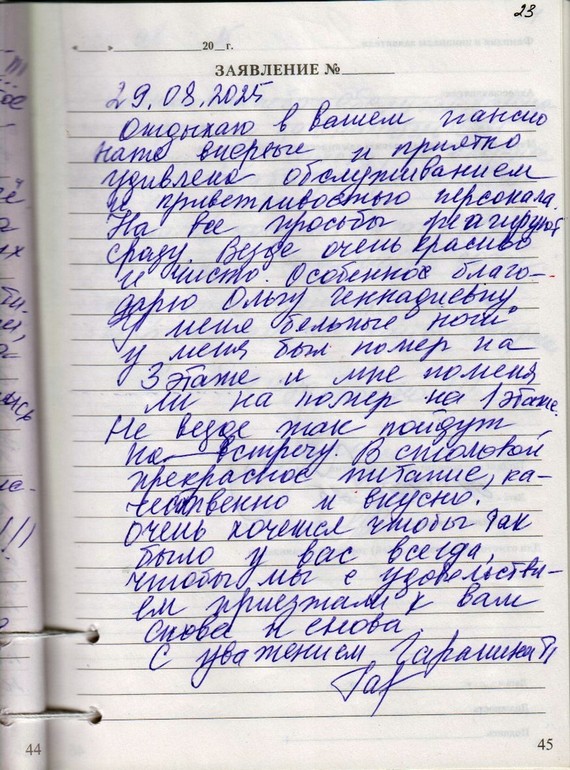 23
« » 20 г.
ЗАЯВЛЕНИЕ №
29.08.2025
Отдыхаю в вашем пансио
нате впервые и приятно
удивлена обслуживанием
и приветливостью персонала.
На все просьбы реагируют
сразу. Везде очень красиво
и чисто. Особенное благо-
дарю Ольгу Геннадиевну
У меня больные ноги
у меня был номер на
3 этаже и мне поменя
ли на номер на 1 этаже.
Не везде так пойдут
на встречу. В столовой
прекрасное питание, ка-
чественно и вкусно.
Очень хочется чтобы так
было у вас всегда,
чтобы мы с удовольстви-
ем приезжали к вам
снова и снова.
С уважением
44
45